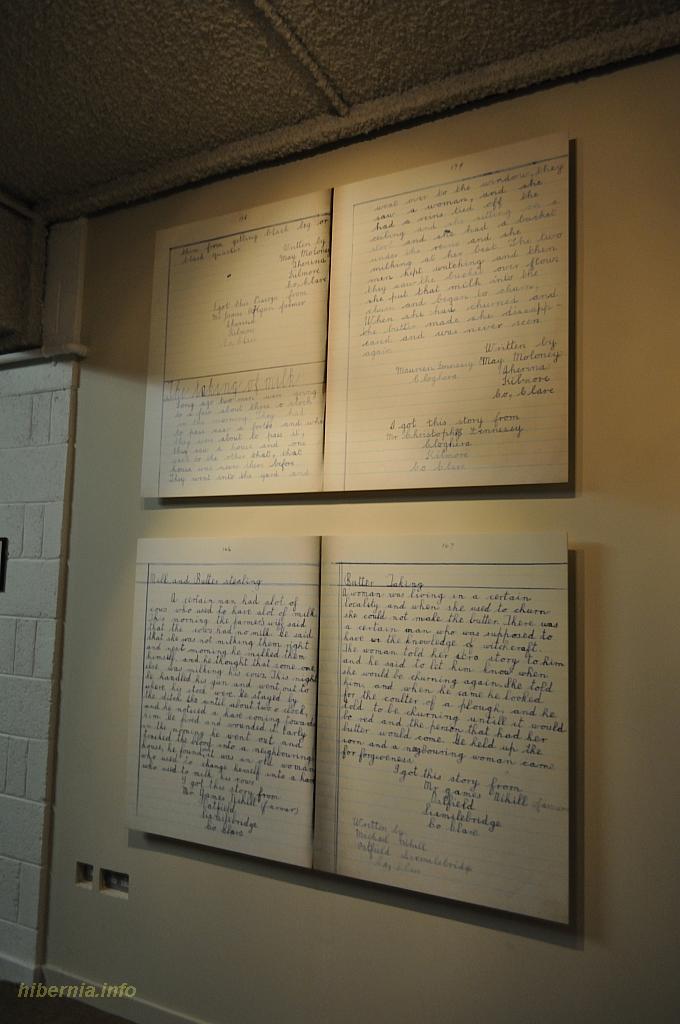 them from getting black leg or
black quarter.
Written by
May Moloney
Sherina
Kilmore
Co. Clare
I got this from
Mr James farmer
Sherina
Kilmore
Co. Clare
The taking of milk
Long ago two men were going
to a fair about three o clock
in the morning. They had
to pass near a forth and when
they were about to pass it,
they saw a house and one
said to the other that, that
house was never there before.
They went into the yard and
179
went over to the window, they
saw a woman, and she
had a reins tied off the
ceiling and she sitting on a
stool and she had a bucket
under the reins and she
milking at her best. The two
men kept watching and then
they saw the bucket over flown
she put that milk into the
churn and began to churn,
When she had churned and
the butter made she disapp-
eared and was never seen
again.
Written by
Maureen Fennessy May Moloney
Cloghera Sherina
Kilmore
Co, Clare
I got this story from
Mr Christopher Fennessy
Cloghera
Kilmore
Co Clare
166
Milk and Butter stealing
A certain man had alot of
cows who used to have alot of milk
This morning the farmer's wife said
that the cows had no milk. He said
that she was not milking them right
and next morning he milked them
himself, and he thought that some one
else was milking his cows. This night
he handled his gun and went out to
where his stock were. He stayed by
the ditch until about two o clock,
and he noticed a hare coming towards
him. He fired and wounded it. Early
in the morning he went out and
tracked the blood into a neighbouring
house, he found it was an old woman
who used to change herself into a hare
who used to milk his cows.
I got this story from
Mr James Nihill (farmer)
Oatfield
Sixmilebridge
Co Clare
167
Butter Taking
A woman was living in a certain
locality and when she used to churn
she could not make the butter. There was
a certain man who was supposed to
have the knowledge of witchcraft.
The woman told her story to him
and he said to let him know when
she would be churning again. She told
him, and when he came he looked
for the coulter of a plough, and he
told to be churning untill it would
be red and the person that had her
butter would come. He held up the
and a neighbouring woman came
for forgiveness.
I got this story from
Mr James Nihill farmer
Oatfield
Sixmilebridge
Co Clare
Written by
Michael Nihill
Oatfield Sixmilebridge
Co, Clare
hibernia.info